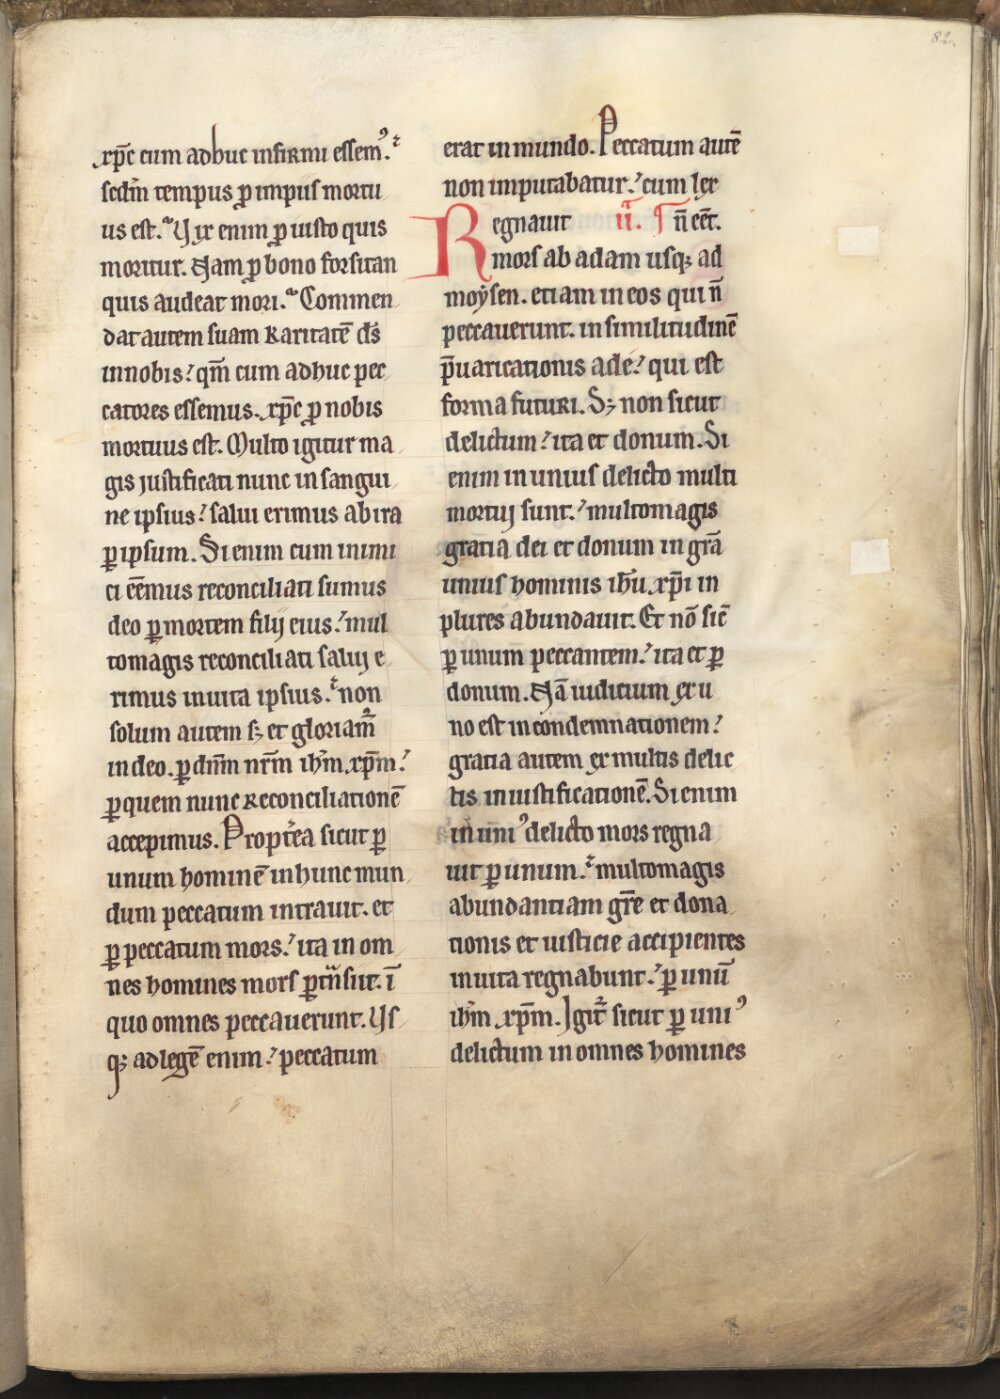 82.
xp̄c cum adhuc infirmi essem᾽.
scdm̄ tempus ꝓ impus mortu
us est. Vix enim ꝓ iusto quis
moritur. Nam ꝓ bono forsitan
quis audeat mori. Commen
dat autem suam karitatē ds̄
in nobis? qm̄ cum adhuc pec
catores essemus. xp̄c ꝓ nobis
mortuus est. Multo igitur ma
gis justificati nunc in sangui
ne ipsius? salui erimus ab ira
ꝑ ipsum. Si enim cum inimi
ci eēmus reconciliati sumus
deo ꝑ mortem filij eius? mul
tomagis reconciliati saluj e
rimus in uita ipsius. non
solum autem sꝫ et gloriam̄
in deo. ꝑ dnm̄ nrm̄ ihm̄ xpm̄?
ꝑ quem nunc reconciliationē
accepimus. Propt̄ea sicut ꝑ
unum hominē in hunc mun
dum peccatum intrauit. et
ꝑ peccatum mors? ita in om
nes homines mors ꝑtn̄siit. ī
quo omnes peccauerunt. Us
qꝫ ad legē enim? peccatum
erat in mundo. Peccatum autē
non imputabatur? cum lex
Regnauit ii. ¶ n̄ eēt.
mors ab adam usqꝫ ad
moysen. etiam in eos qui n̄
peccauerunt. in similitudinē
p̄uaricationis ade? qui est
forma futuri. Sꝫ non sicut
delictum? ita et donum. Si
enim in unius delicto multi
mortuj sunt? multomagis
gratia dei et donum in grā
unius hominis ihū xp̄i in
plures abundauit. Et nō sic̄
ꝑ unum peccantem? ita et ꝑ
donum. Nā iudicium ex u
no est in condemnationem?
gratia autem ex multis delic
tis in iustificationē. Si enim
in uni᾽ delicto mors regna
uit ꝑ unum. multomagis
abundantiam gr̄e et dona
tionis et iusticie accipientes
in uita regnabunt? ꝑ unū
ihm̄ xpm̄. Igit᷑ sicut ꝑ uni᾽
delictum in omnes homines